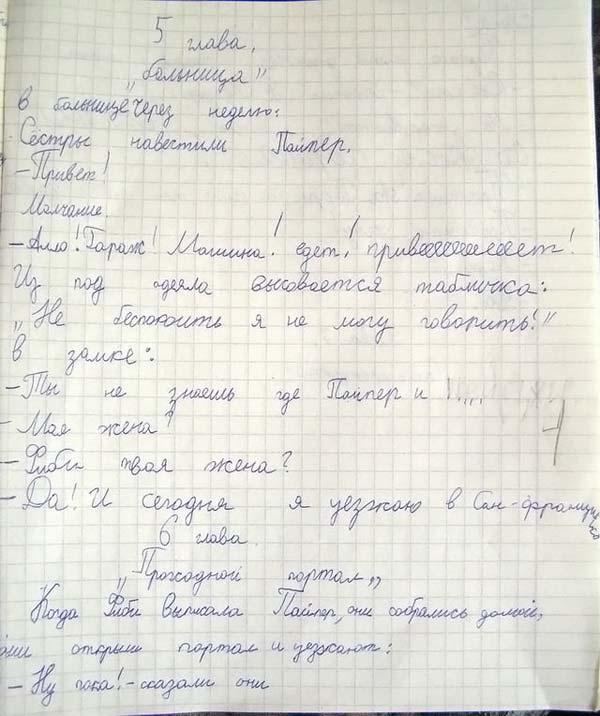 5 глава.
„больница"
В больнице через неделю:
Сёстры навестили Пайпер.
- Привет!
Молчание.
- Алло! Гараж! Машина! едет! привееееееееет!
Из под одеяла высовается табличка:
„Не беспокоить я не могу говорить!"
В замке:
- Ты не знаешь где Пайпер и !....
- Моя жена?
- Фиби твоя жена?
- Да! И сегодня я уезжаю в Сан-Франциско
6 глава.
„Проходной портал„
Когда Фиби выписала Пайпер, они собрались домой,
они открыли портал и уезжают:
- Ну пока! - сказали они